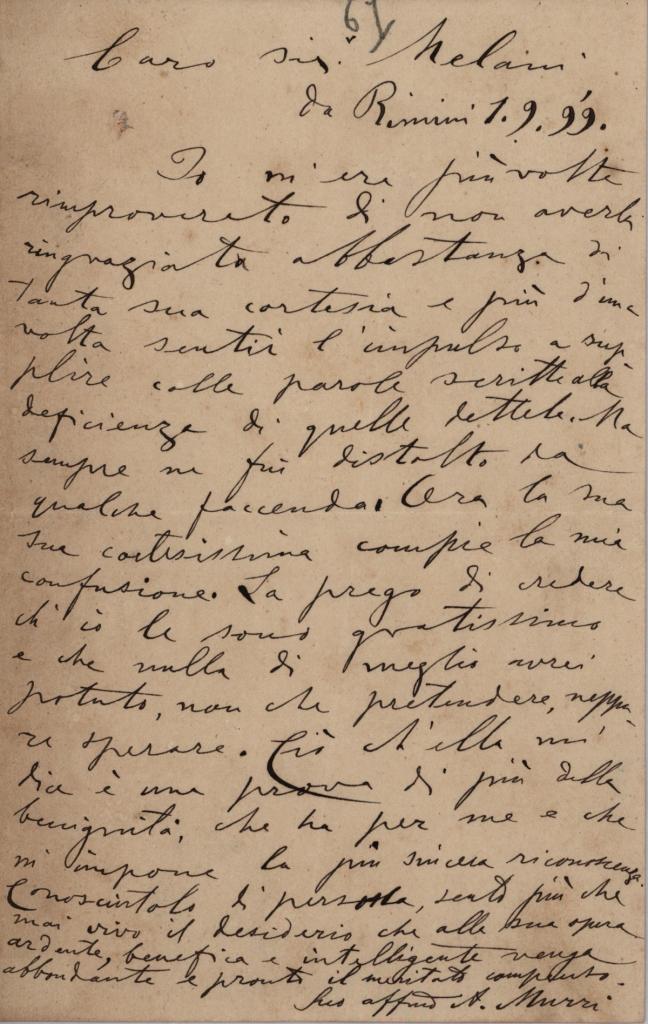 67
Caro sig.r Melani
da Rimini 1.9.99.
Io m'era più volte
rimproverato di non averla
ringraziata abbastanza di
tanta sua cortesia e più d'una
volta sentii l'impulso a sup-
plire colle parole scritte alla
deficienza di quelle dettele. Ma
sempre ne fui distolto da
qualche faccenda. Ora la sua
cortesissima compie la mia
confusione. La prego di credere
ch'io le sono gratissimo
e che nulla di meglio avrei
potuto, non che pretendere, neppu-
re sperare. Ciò ch'ella mi
dice è una prova di più della
benignità, che ha per me e che
m'impone la più sincera riconoscenza.
Conosciutolo di persona, sento più che
mai vivo il desiderio che alla sua opera
ardente, benefica e intelligente venga
abbondante e pronto il meritato compenso.
Suo affmo A. Murri